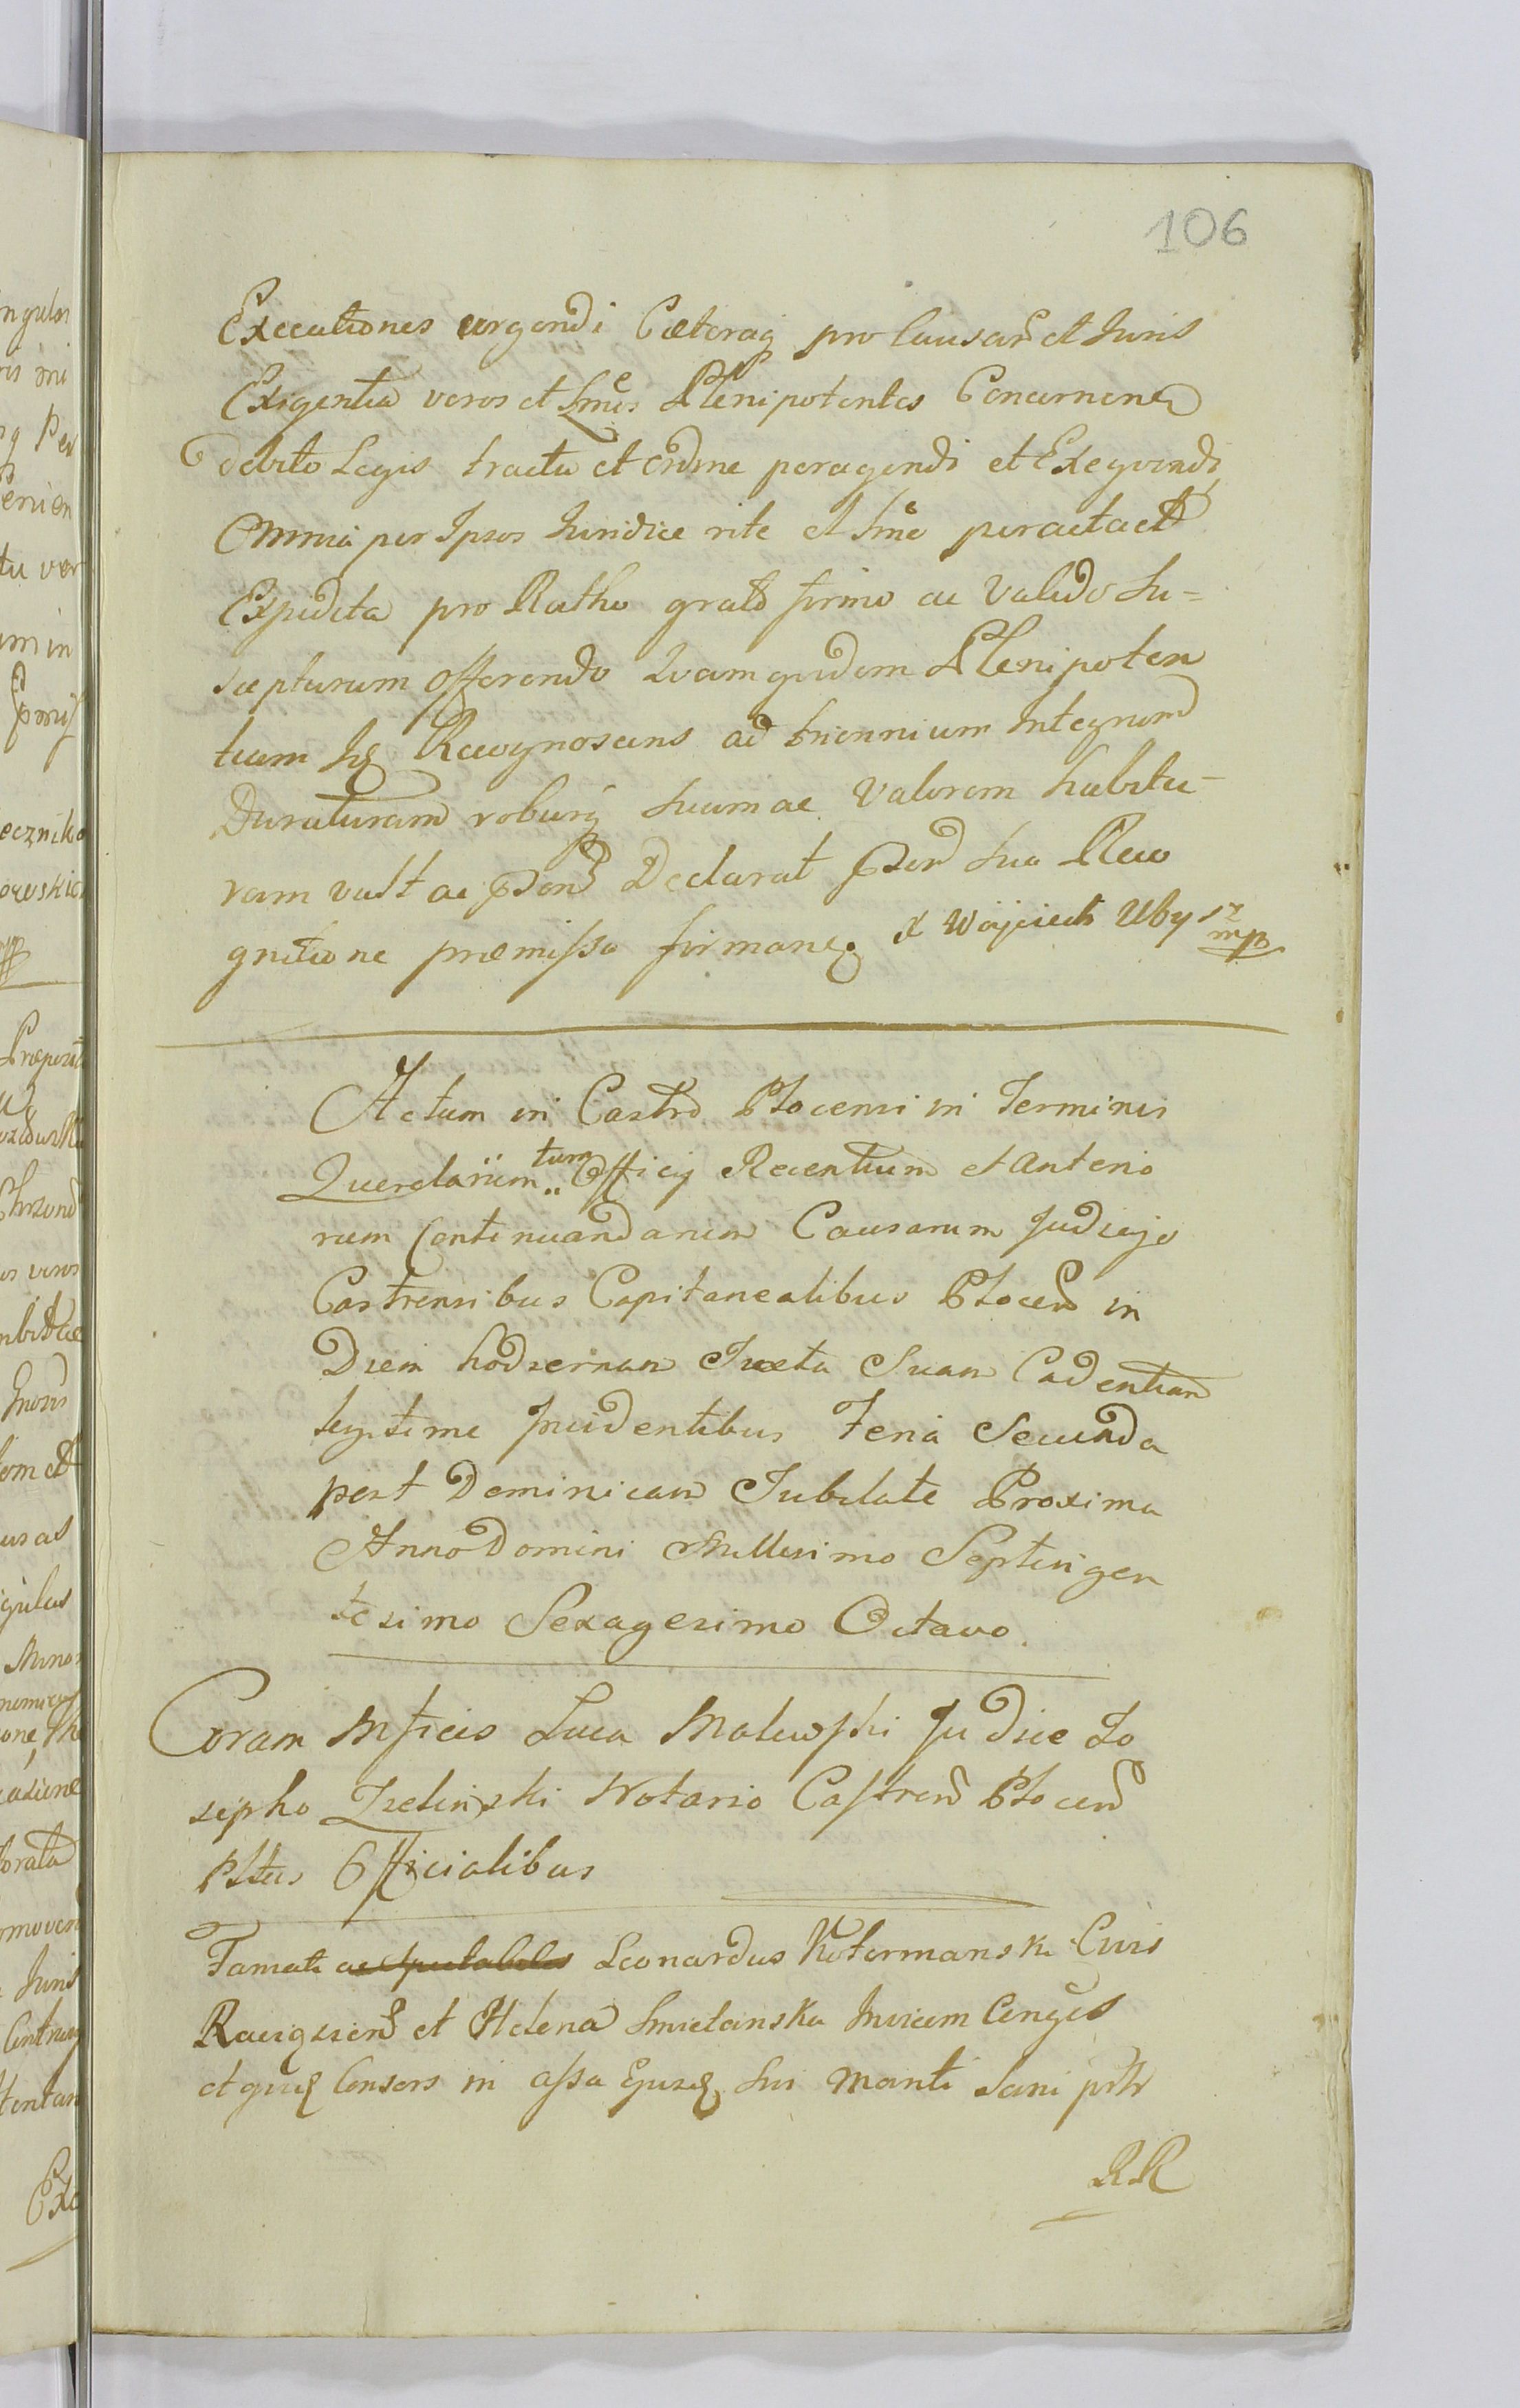 106
Executiones urgendi Cæteraq pro Causar et Juris
Exigentia veros et Lmes Plenipotentes Concernen
debito Legis tractu et ordine peragendi et Exequendi
Omnia per Ipsos Juridice rite et Lme peracta et
Expedita pro Ratho grato firmo ac Valido Su=
scepturum offerendo Quamquidem Plenipoten
tiam Recognoscens ad triennium Integrum
Duraturam roburq suum ac Valorem habitu-
ram vult ac Declarat sua Reco
gnitione præmissa firman X Woyciech Ubysz
mp
Actum in Castro Plocensi in Terminis
Querelarum tum Officij Recentium et Anterio
rum Continuandarum Causarum Judicijs
Castrensibus Capitanealibus Plocen in
Diem hodiernam Juxta Suam Cadentiam
legitime Incidentibus Feria Secunda
post Dominicam Jubilate Proxima
Anno Domini Millesimo Septingen
tesimo Sexagesimo Octavo.
Coram Mficis Luca Malewski Judice Jo
sepho Zielinski Notario Castren Plocen
Pltus Officialibus
Famati ac Leonardus Kotermanski Civis
Racigzien et Helena Smietanska Invicem Conges
et Consors in assa sui Mariti Sani
RR